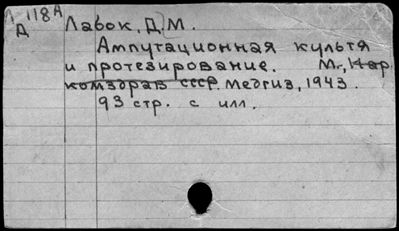 118А
Д Лавок, Д.М.
Ампутационная культя
и протезирование. М., Нар
комздрав СССР. Медгиз, 1943.
93 стр. с илл.